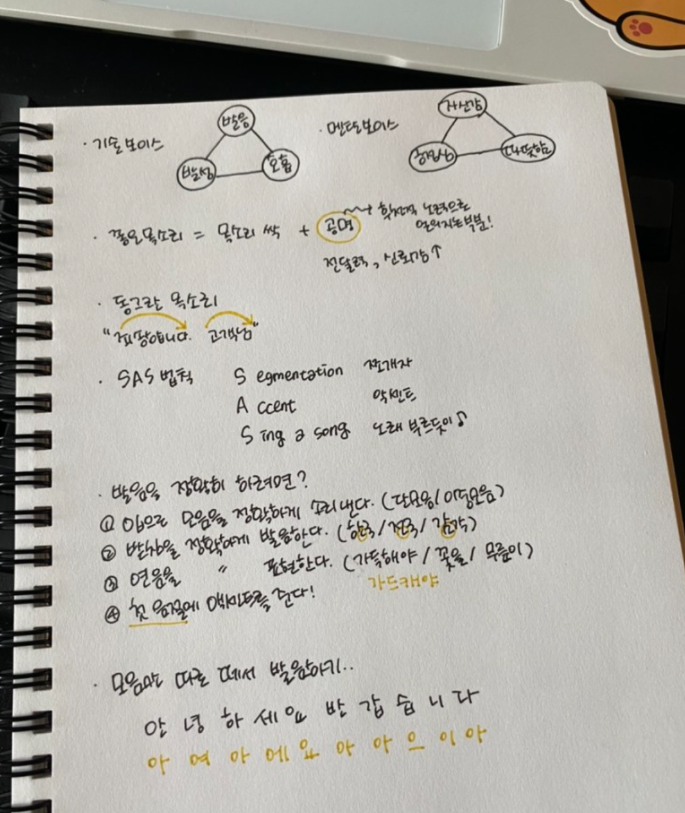 · 기술보이스
발음
발성
호흡
· 멘탈보이스
자신감
열정
따뜻함
· 좋은목소리 = 목소리 싹 + 공명 → 후천적 노력으로
얻어지는부분!
전달력, 신뢰감↑
· 동그란 목소리
"괜찮습니다. 고객님"
· SAS 법칙 S egmentation 쪼개자
A ccent 악센트
S ing a song 노래 부르듯이♪
· 발음을 정확히 하려면?
① 입으로 모음을 정확하게 소리낸다. (단모음/이중모음)
② 받침을 정확하게 발음한다. (한국/전국/감각)
③ 연음을 〃 표현한다. (가득해야/꽃을/무릎이)
가드캐야
④ 첫 음절에 악센트를 준다!
· 모음만 따로 떼서 발음하기..
안 녕 하 세 요 반 갑 습 니 다
아 여 아 에 요 아 아 으 이 아